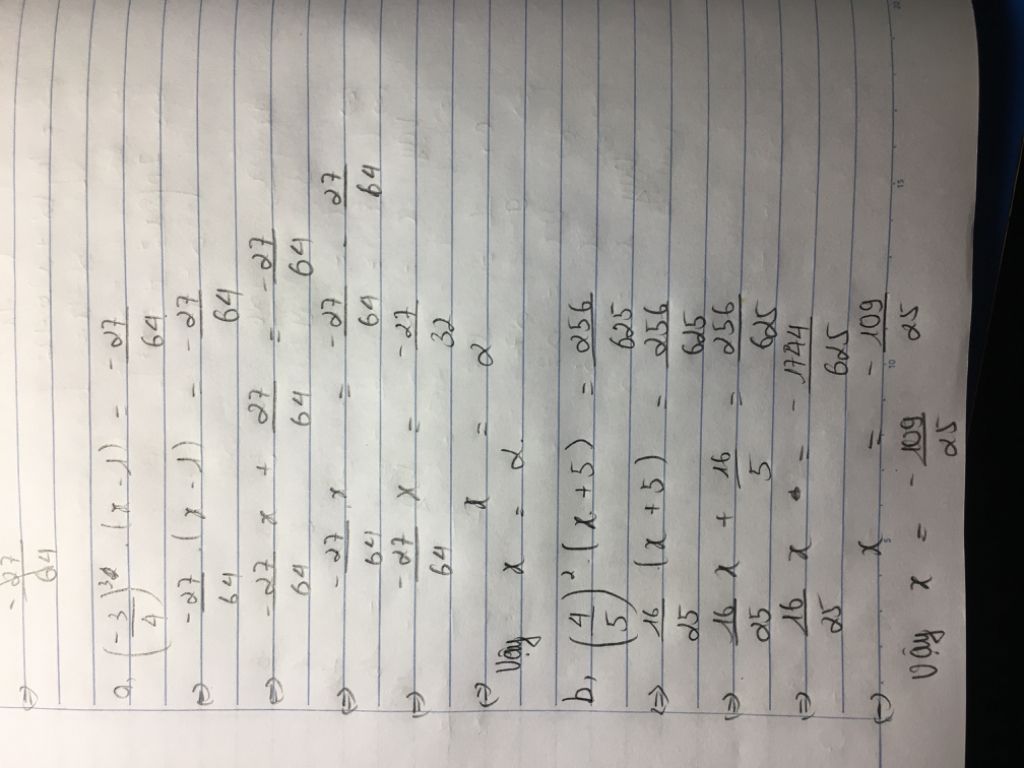 ⇒ -27/64
a, (-3/4)³ . (x - 1) = - 27/64
⇒ -27/64 . (x - 1) = - 27/64
⇒ -27/64 x + 27/64 = - 27/64
⇒ -27/64 x = - 27/64 - 27/64
⇒ -27/64 x = - 27/32
⇒ x = 2
Vậy x = 2.
b, (4/5)² . (x + 5) = 256/625
⇒ 16/25 (x + 5) = 256/625
⇒ 16/25 x + 16/5 = 256/625
⇒ 16/25 x = - 1744/625
⇒ x = - 109/25
Vậy x = - 109/25